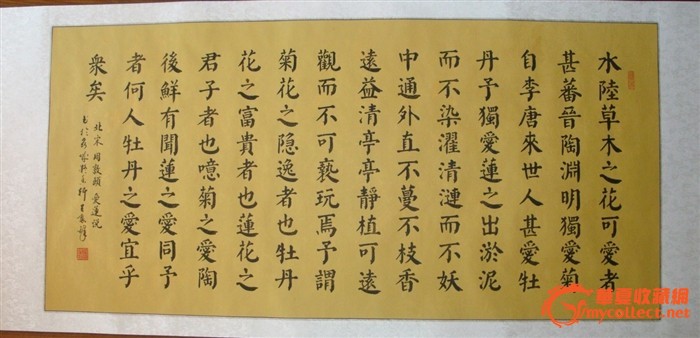 水陸草木之花可愛者
甚蕃晉陶淵明獨愛菊
自李唐來世人甚愛牡
丹予獨愛蓮之出淤泥
而不染濯清漣而不妖
中通外直不蔓不枝香
遠益清亭亭靜植可遠
觀而不可褻玩焉予謂
菊花之隐逸者也牡丹
花之富貴者也蓮花之
君子者也噫菊之愛陶
後鮮有聞蓮之愛同予
者何人牡丹之愛宜乎
衆矣
北宋周敦頤愛蓮说
華夏收藏網
mycollect.net